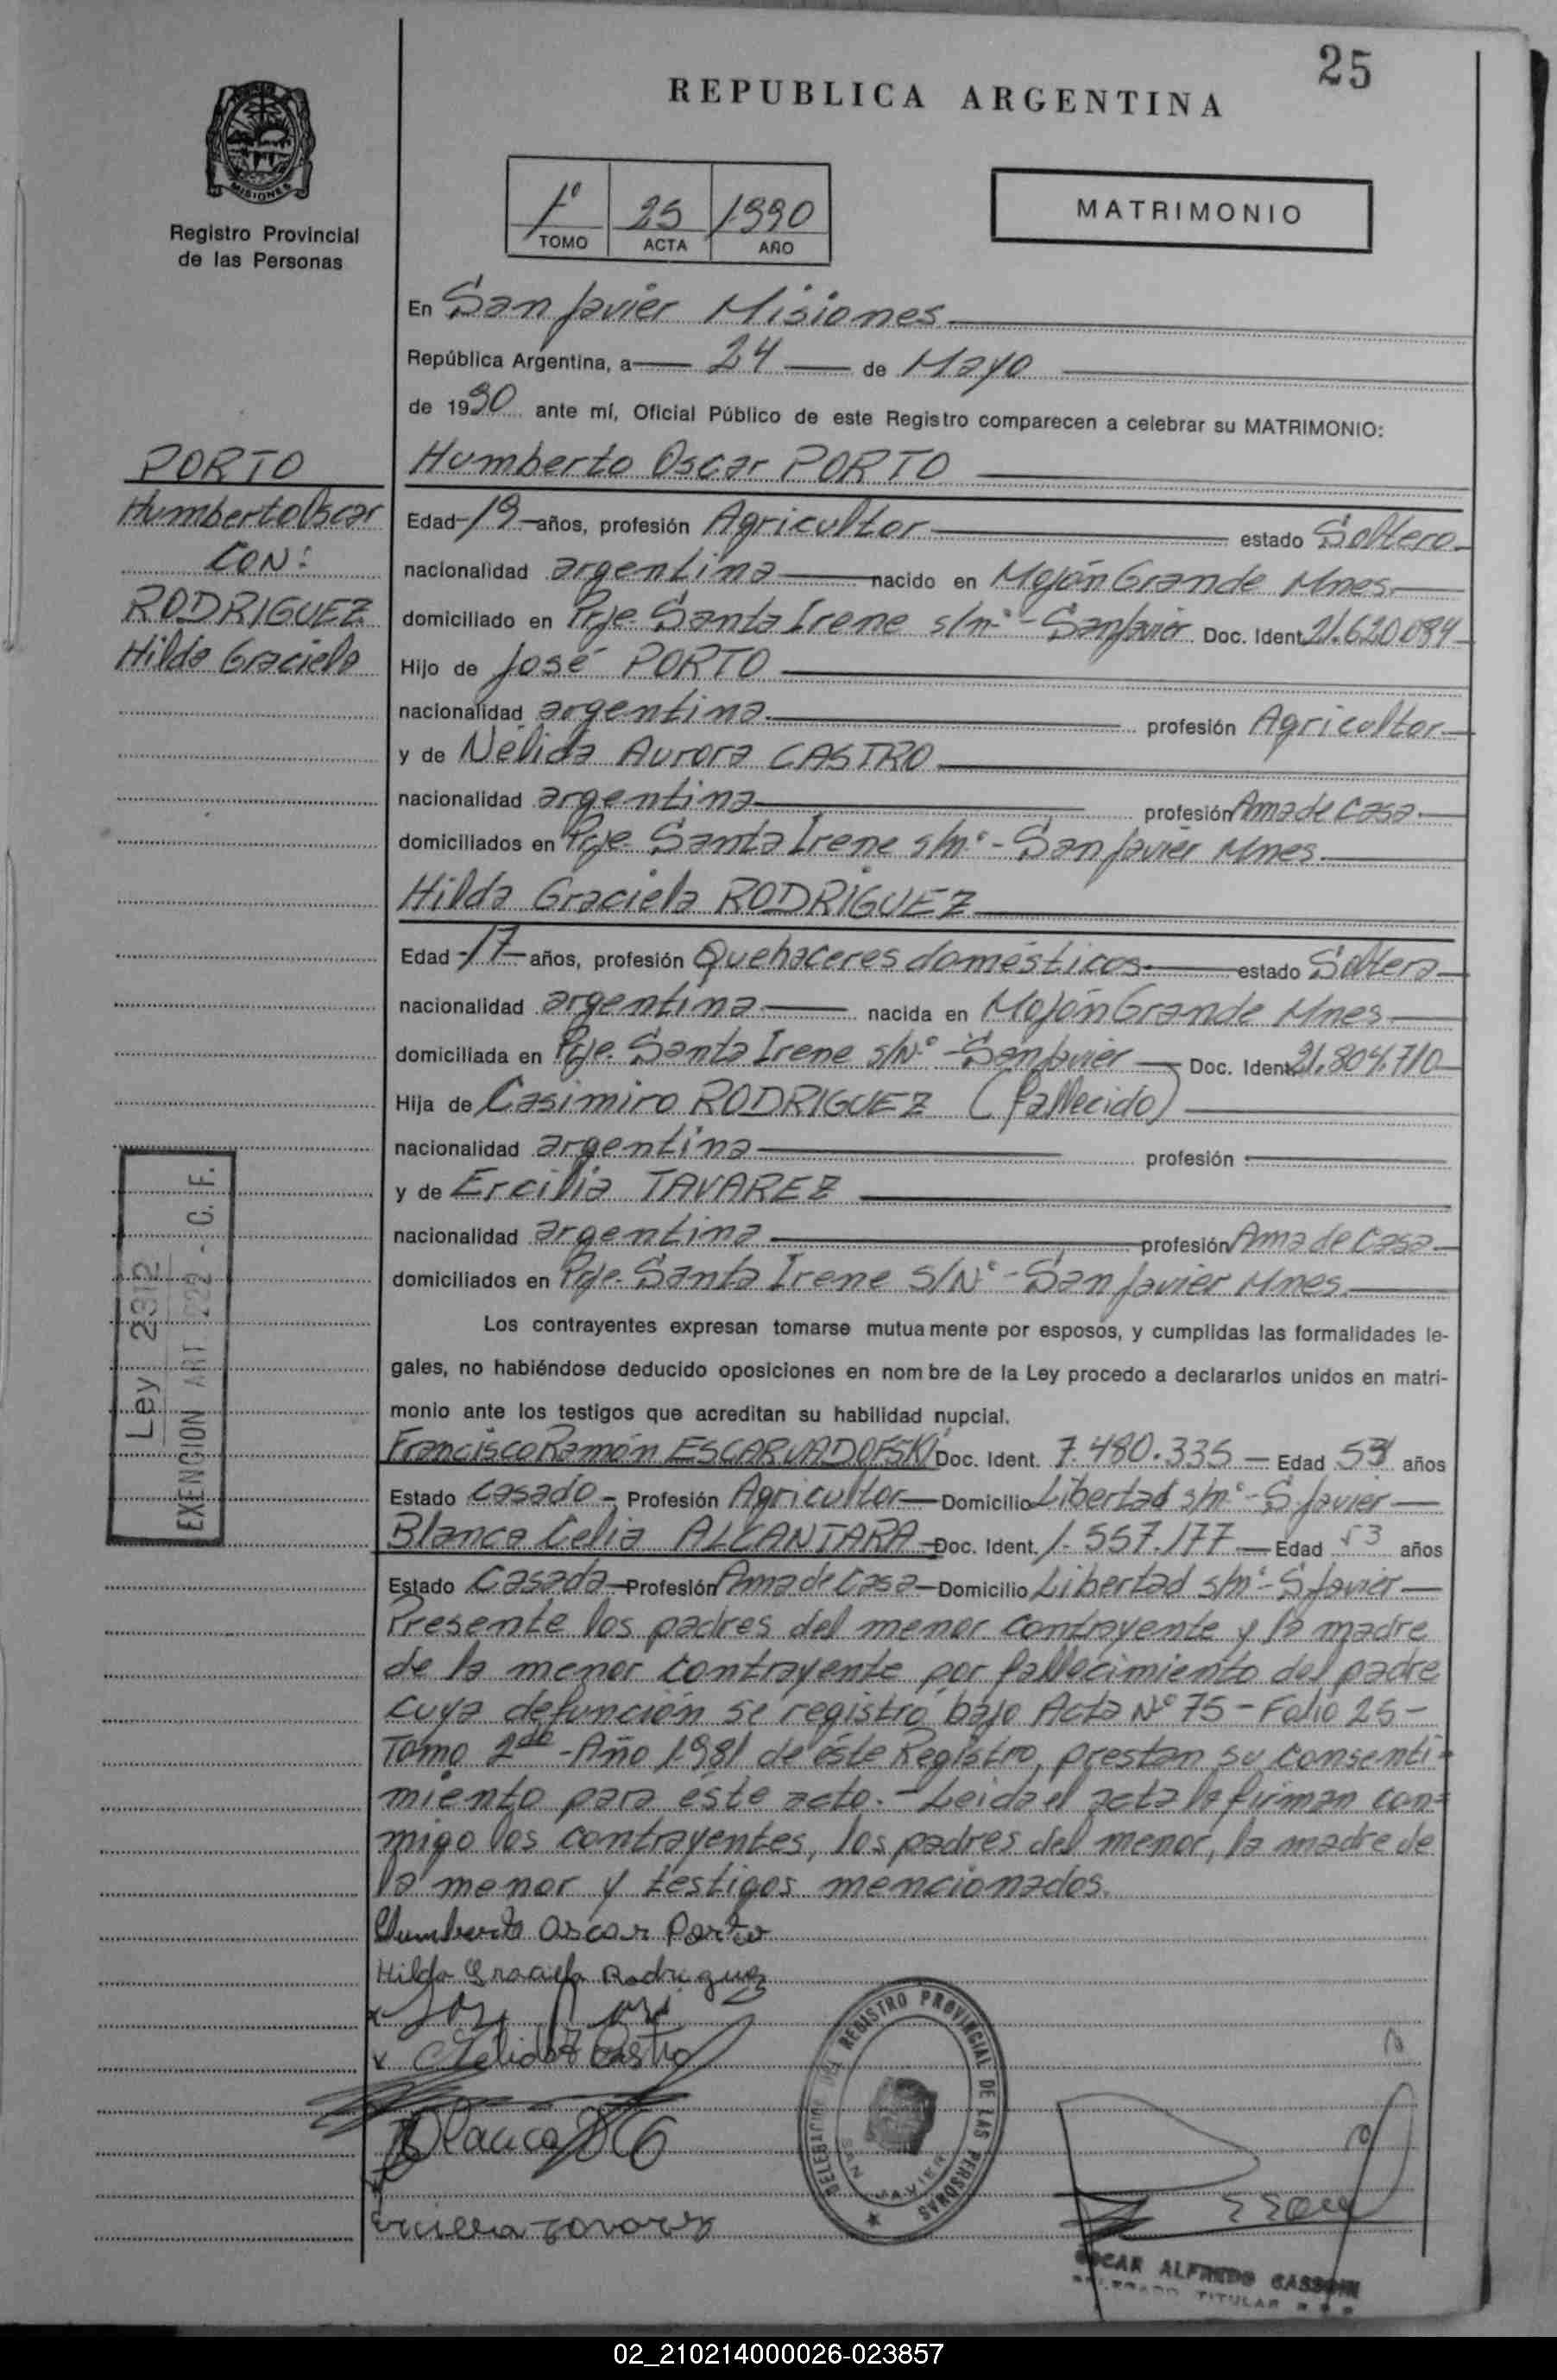 25
REPUBLICA ARGENTINA
MISIONES
Registro Provincial
de las Personas
1º 25 1990
TOMO ACTA AÑO
MATRIMONIO
En San Javier Misiones
República Argentina, a 24 de Mayo
de 1990 ante mí, Oficial Público de este Registro comparecen a celebrar su MATRIMONIO:
PORTO
Humberto Oscar
CON:
RODRIGUEZ
Hilda Graciela
Humberto Oscar PORTO
Edad 19 años, profesión Agricultor estado Soltero
nacionalidad argentina nacido en Mojón Grande Mnes.
domiciliado en Pje. Santa Irene s/nº - San Javier Doc. Ident. 21.620.084
Hijo de José PORTO
nacionalidad argentina profesión Agricultor
y de Nélida Aurora CASTRO
nacionalidad argentina profesión Ama de Casa
domiciliados en Pje. Santa Irene s/nº - San Javier Mnes.
Hilda Graciela RODRIGUEZ
Edad 17 años, profesión Quehaceres domésticos estado Soltera
nacionalidad argentina nacida en Mojón Grande Mnes
domiciliada en Pje. Santa Irene s/Nº - San Javier Doc. Ident. 21.804.710
Hija de Casimiro RODRIGUEZ (fallecido)
nacionalidad argentina profesión
y de Ercilia TAVAREZ
nacionalidad argentina profesión Ama de Casa
domiciliados en Pje. Santa Irene S/Nº - San Javier Mnes.
Ley 2312
EXENCION ART 222 - C. F.
Los contrayentes expresan tomarse mutuamente por esposos, y cumplidas las formalidades le-
gales, no habiéndose deducido oposiciones en nombre de la Ley procedo a declararlos unidos en matri-
monio ante los testigos que acreditan su habilidad nupcial.
Francisco Ramón ESCARVADOFSKI Doc. Ident. 7.480.335 Edad 53 años
Estado Casado Profesión Agricultor Domicilio Libertad s/nº - S. Javier
Blanca Celia ALCANTARA Doc. Ident. 1.557.177 Edad 53 años
Estado Casada Profesión Ama de Casa Domicilio Libertad s/nº - S. Javier
Presente los padres del menor contrayente y la madre
de la menor contrayente por fallecimiento del padre
cuya defunción se registró bajo Acta Nº 75 - Folio 25 -
Tomo 2do - Año 1981 de éste Registro, prestan su consenti-
miento para éste acto. - Leida el acta la firman con-
migo los contrayentes, los padres del menor, la madre de
la menor y testigos mencionados.
Humberto Oscar Porto
Hilda Graciela Rodriguez
Nelida Castro
Blanca
Ercilia Tavarez
DELEGACION DEL REGISTRO PROVINCIAL DE LAS PERSONAS
SAN JAVIER
OSCAR ALFREDO
TITULAR
02_210214000026-023857